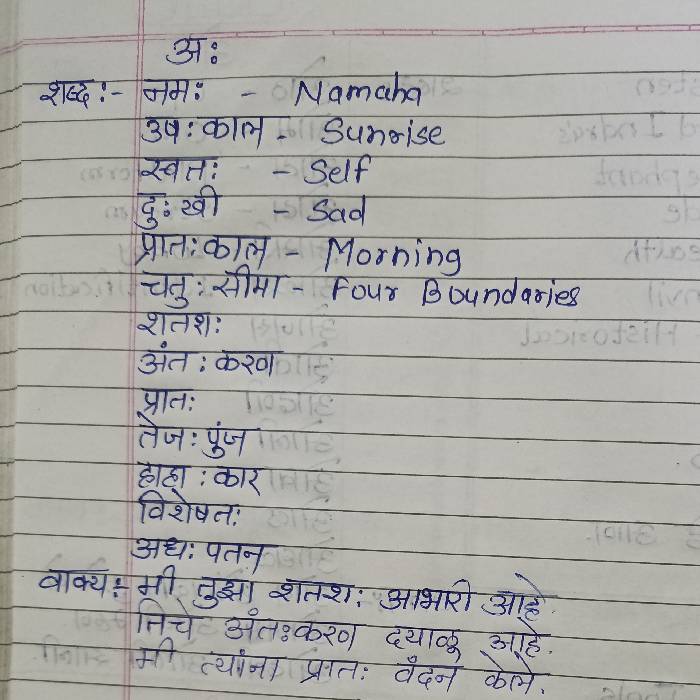 अः
शब्दः- नमः - Namaha
उषःकाल - Sunrise
स्वतः - Self
दुःखी - Sad
प्रातःकाल - Morning
चतुःसीमा - Four Boundaries
शतशः
अंतःकरण
प्रातः
तेजःपुंज
हाहाःकार
विशेषतः
अधःपतन
वाक्यः- मी तुझा शतशः आभारी आहे.
तिचे अंतःकरण दयाळू आहे.
मी त्यांना प्रातः वंदन केले.